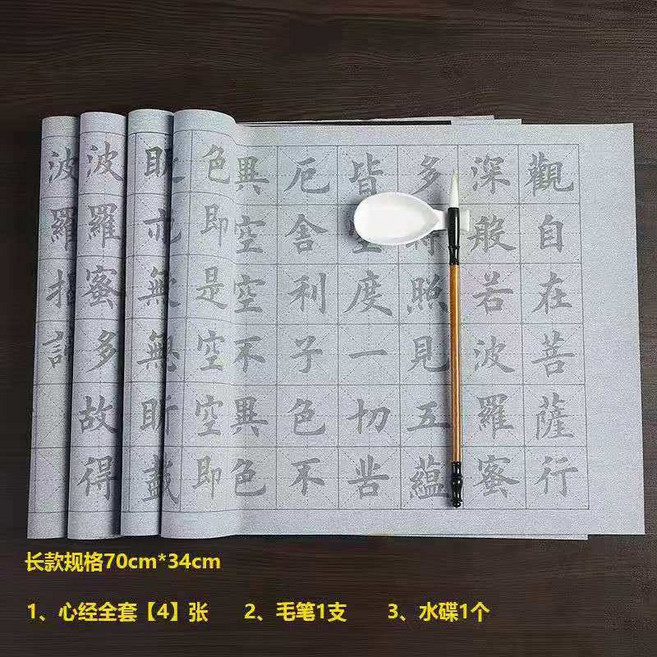 觀自在菩薩行
深般若波羅蜜
多照見五蘊
皆空度一切苦
厄舍利子色不
異空空不異色
色即是空空即
眀亦無無眀盡
波羅蜜多故得
波羅
长款规格70cm*34cm
1、心经全套【4】张 2、毛笔1支 3、水碟1个